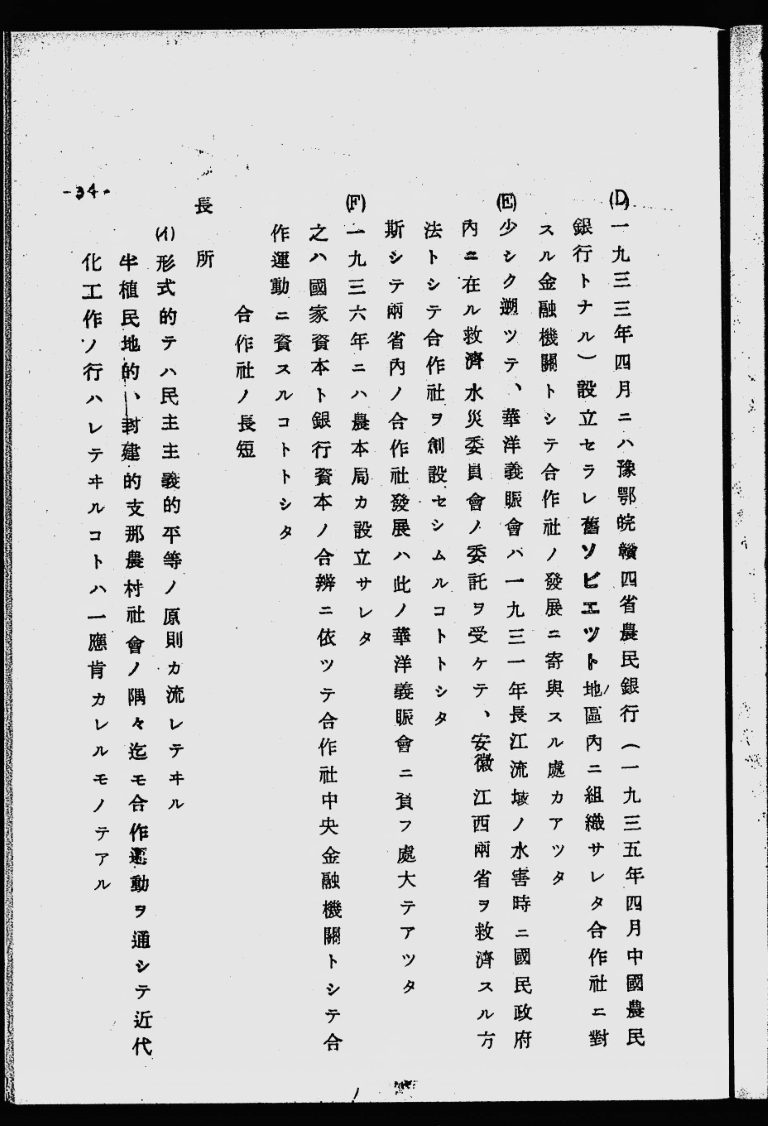 (D) 一九三三年四月ニハ豫鄂皖贛四省農民銀行(一九三五年四月中國農民
銀行トナル)設立セラレ舊ソビエツト地區内ニ組織サレタ合作社ニ對
スル金融機關トシテ合作社ノ發展ニ寄與スル處カアツタ
(E) 少シク遡ツテ、華洋義賑會ハ一九三一年長江流域ノ水害時ニ國民政府
内ニ在ル救濟水災委員會ノ委託ヲ受ケテ、安徽江西兩省ヲ救濟スル方
法トシテ合作社ヲ創設セシムルコトトシタ
斯シテ兩省内ノ合作社發展ハ此ノ華洋義賑會ニ負フ處大テアツタ
(F) 一九三六年ニハ農本局カ設立サレタ
之ハ國家資本ト銀行資本ノ合辨ニ依ツテ合作社中央金融機關トシテ合
作運動ニ資スルコトトシタ
合作社ノ長短
長所
(イ) 形式的テハ民主主義的平等ノ原則カ流レテヰル
半植民地的、封建的支那農村社會ノ隅々迄モ合作運動ヲ通シテ近代
化工作ノ行ハレテヰルコトハ一應肯カレルモノテアル
-34-